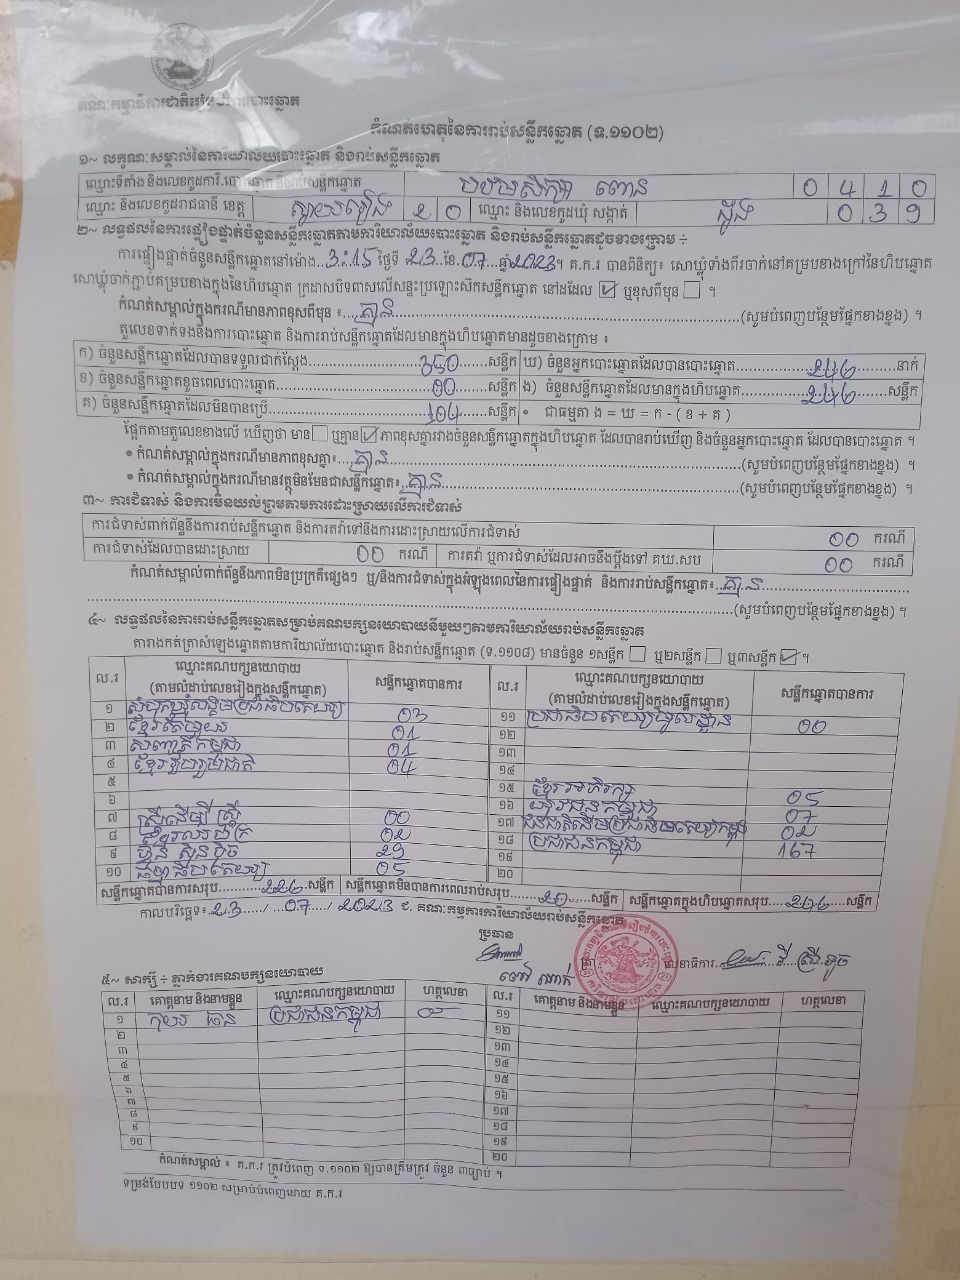 គណៈកម្មាធិការជាតិរៀបចំការបោះឆ្នោត
កំណត់ហេតុនៃការរាប់សន្លឹកឆ្នោត (ទ.១១០២)
១~ លក្ខណៈសម្គាល់នៃការិយាល័យបោះឆ្នោត និងរាប់សន្លឹកឆ្នោត
ឈ្មោះទីតាំង និងលេខកូដការិ.បោះឆ្នោត និងរាប់សន្លឹកឆ្នោត បឋមសិក្សា 0 4 1 0
ឈ្មោះ និងលេខកូដរាជធានី ខេត្ត ស្វាយរៀង 2 0 ឈ្មោះ និងលេខកូដឃុំ សង្កាត់ 0 3 9
២~ លទ្ធផលនៃការផ្ទៀងផ្ទាត់ចំនួនសន្លឹកឆ្នោតតាមការិយាល័យបោះឆ្នោត និងរាប់សន្លឹកឆ្នោតដូចខាងក្រោម ÷
ការផ្ទៀងផ្ទាត់ចំនួនសន្លឹកឆ្នោតនៅម៉ោង..3:15 ថ្ងៃទី 23 ខែ.07...ឆ្នាំ2023។ គ.ក.រ បានពិនិត្យ៖ សោឃ្លុំទាំងពីរចាក់នៅគម្របខាងក្រៅនៃហិបឆ្នោត
សោឃ្លុំចាក់ភ្ជាប់គម្របខាងក្នុងនៃហិបឆ្នោត ក្រដាសបិទពាសលើសន្ទះប្រឡោះសិកសន្លឹកឆ្នោត នៅដដែល ☑ ឬខុសពីមុន ☐ ។
កំណត់សម្គាល់ក្នុងករណីមានភាពខុសពីមុន ៖...គ្មាន...(សូមបំពេញបន្ថែមផ្នែកខាងខ្នង) ។
តួលេខទាក់ទងនឹងការបោះឆ្នោត និងការរាប់សន្លឹកឆ្នោតដែលមានក្នុងហិបឆ្នោតមានដូចខាងក្រោម ៖
ក) ចំនួនសន្លឹកឆ្នោតដែលបានទទួលជាក់ស្តែង...350...សន្លឹក ឃ) ចំនួនអ្នកបោះឆ្នោតដែលបានបោះឆ្នោត...246...នាក់
ខ) ចំនួនសន្លឹកឆ្នោតខូចពេលបោះឆ្នោត...00...សន្លឹក ង) ចំនួនសន្លឹកឆ្នោតដែលមានក្នុងហិបឆ្នោត...246...សន្លឹក
គ) ចំនួនសន្លឹកឆ្នោតដែលមិនបានប្រើ...104...សន្លឹក • ជាធម្មតា ង = ឃ = ក - ( ខ + គ )
ផ្អែកតាមតួលេខខាងលើ ឃើញថា មាន ☐ ឬគ្មាន ☑ ភាពខុសគ្នារវាងចំនួនសន្លឹកឆ្នោតក្នុងហិបឆ្នោត ដែលបានរាប់ឃើញ និងចំនួនអ្នកបោះឆ្នោត ដែលបានបោះឆ្នោត ។
• កំណត់សម្គាល់ក្នុងករណីមានភាពខុសគ្នា៖...គ្មាន...(សូមបំពេញបន្ថែមផ្នែកខាងខ្នង) ។
• កំណត់សម្គាល់ក្នុងករណីមានវត្ថុមិនមែនជាសន្លឹកឆ្នោត៖...គ្មាន...(សូមបំពេញបន្ថែមផ្នែកខាងខ្នង) ។
៣~ ការជំទាស់ និងការមិនយល់ព្រមតាមការដោះស្រាយលើការជំទាស់
ការជំទាស់ពាក់ព័ន្ធនឹងការរាប់សន្លឹកឆ្នោត និងការតវ៉ាទៅនឹងការដោះស្រាយលើការជំទាស់ 00 ករណី
ការជំទាស់ដែលបានដោះស្រាយ 00 ករណី ការតវ៉ា ឬការជំទាស់ដែលអាចនឹងប្តឹងទៅ គឃ.សប 00 ករណី
កំណត់សម្គាល់ពាក់ព័ន្ធនឹងភាពមិនប្រក្រតីផ្សេងៗ ឬ/និងការជំទាស់ក្នុងអំឡុងពេលនៃការផ្ទៀងផ្ទាត់ និងការរាប់សន្លឹកឆ្នោត៖...គ្មាន...
...(សូមបំពេញបន្ថែមផ្នែកខាងខ្នង) ។
៤~ លទ្ធផលនៃការរាប់សន្លឹកឆ្នោតសម្រាប់គណបក្សនយោបាយនីមួយៗតាមការិយាល័យរាប់សន្លឹកឆ្នោត
តារាងកត់ត្រាសំឡេងឆ្នោតតាមការិយាល័យបោះឆ្នោត និងរាប់សន្លឹកឆ្នោត (ទ.១១០៨) មានចំនួន ១សន្លឹក ☐ ឬ២សន្លឹក ☐ ឬ៣សន្លឹក ☑ ។
ល.រ ឈ្មោះគណបក្សនយោបាយ (តាមលំដាប់លេខរៀងក្នុងសន្លឹកឆ្នោត) សន្លឹកឆ្នោតបានការ ល.រ ឈ្មោះគណបក្សនយោបាយ (តាមលំដាប់លេខរៀងក្នុងសន្លឹកឆ្នោត) សន្លឹកឆ្នោតបានការ
១ សំបុកឃ្មុំសង្គមប្រជាធិបតេយ្យ 03 ១១ ប្រជាធិបតេយ្យមូលដ្ឋាន 00
២ ខ្មែរតែមួយ 01 ១២
៣ សញ្ជាតិកម្ពុជា 01 ១៣
៤ ខ្មែររួបរួមជាតិ 04 ១៤
៥ ១៥ ខ្មែរអភិរក្ស 05
៦ ១៦ យុវជនកម្ពុជា 07
៧ ស្ត្រីដើម្បីស្ត្រី 00 ១៧ ជនជាតិដើមប្រជាធិបតេយ្យកម្ពុជា 02
៨ 02 ១៨ ប្រជាជនកម្ពុជា 167
៩ ហ្វ៊ុនស៊ិនប៉ិច 29 ១៩
១០ ធម្មាធិបតេយ្យ 05 ២០
សន្លឹកឆ្នោតបានការសរុប...226...សន្លឹក សន្លឹកឆ្នោតមិនបានការពេលរាប់សរុប...20...សន្លឹក សន្លឹកឆ្នោតក្នុងហិបឆ្នោតសរុប...246...សន្លឹក
កាលបរិច្ឆេទ៖ 23 / 07 / 2023 ជ. គណៈកម្មការការិយាល័យរាប់សន្លឹកឆ្នោត
ប្រធាន
លេខាធិការ
៥~ សាក្សី ÷ ភ្នាក់ងារគណបក្សនយោបាយ
ល.រ គោត្តនាម និងនាមខ្លួន ឈ្មោះគណបក្សនយោបាយ ហត្ថលេខា ល.រ គោត្តនាម និងនាមខ្លួន ឈ្មោះគណបក្សនយោបាយ ហត្ថលេខា
១ ប្រជាជនកម្ពុជា ១១
២ ១២
៣ ១៣
៤ ១៤
៥ ១៥
៦ ១៦
៧ ១៧
៨ ១៨
៩ ១៩
១០ ២០
កំណត់សម្គាល់ ៖ គ.ក.រ ត្រូវបំពេញ ទ.១១០២ ឱ្យបានត្រឹមត្រូវ ចំនួន ៣ច្បាប់ ។
ទម្រង់បែបបទ ១១០២ សម្រាប់បំពេញដោយ គ.ក.រ